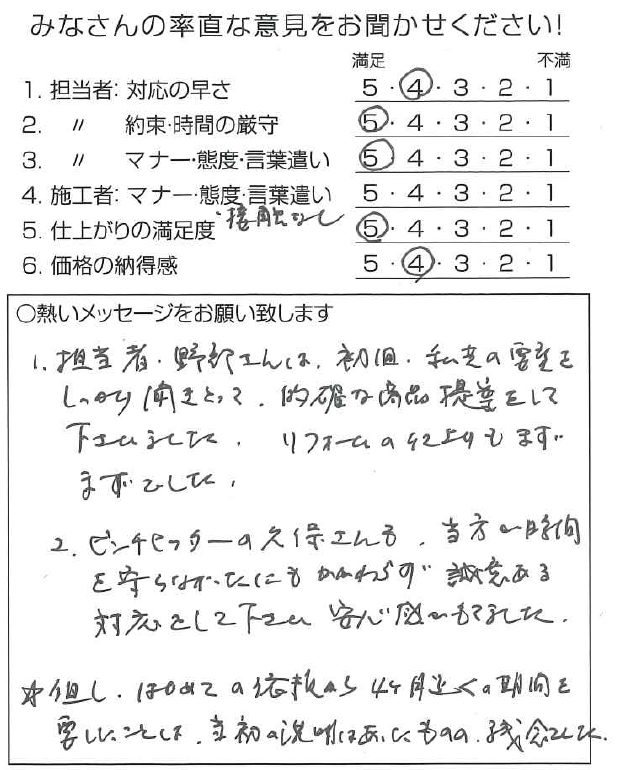 みなさんの率直な意見をお聞かせください!
満足 不満
1. 担当者: 対応の早さ 5・4・3・2・1
2. 〃 約束・時間の厳守 5・4・3・2・1
3. 〃 マナー・態度・言葉遣い 5・4・3・2・1
4. 施工者: マナー・態度・言葉遣い 5・4・3・2・1
・接触なし
5. 仕上がりの満足度 5・4・3・2・1
6. 価格の納得感 5・4・3・2・1
○熱いメッセージをお願い致します
1. 担当者・野郎さんは、初回・私共の要望を
しっかり聞きとって、的確な商品提案をして
下さいました。リフォームの仕上りもまず
まずでした。
2. ピンチヒッターの久保さんも、当方が時間
を守らなかったにもかかわらず誠意ある
対応をして下さい安心感がもてました。
☆但し、はじめての依頼から4ヶ月近くの期間を
要したことは、当初の説明はあったものの、残念でした。